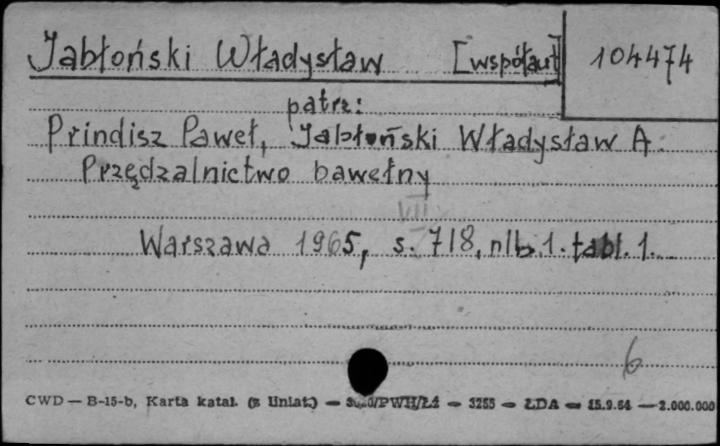 Jabłoński Władysław [współaut] 104474
patrz:
Prindisz Paweł, Jabłoński Władysław A.
Przędzalnictwo bawełny
VII
Warszawa 1965, s. 718, nlb. 1. tabl. 1.
6
CWD — B-15-b, Karta katal. (z liniat.) — /PWH/Łź — 3255 — ŁDA — 15.9.64 — 2.000.000